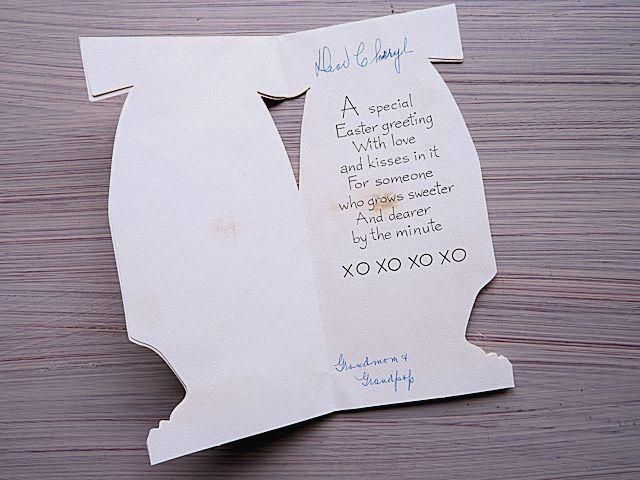 Dear Cheryl
A special
Easter greeting
With love
and kisses in it
For someone
who grows sweeter
And dearer
by the minute
XO XO XO XO
Grandmom &
Grandpop